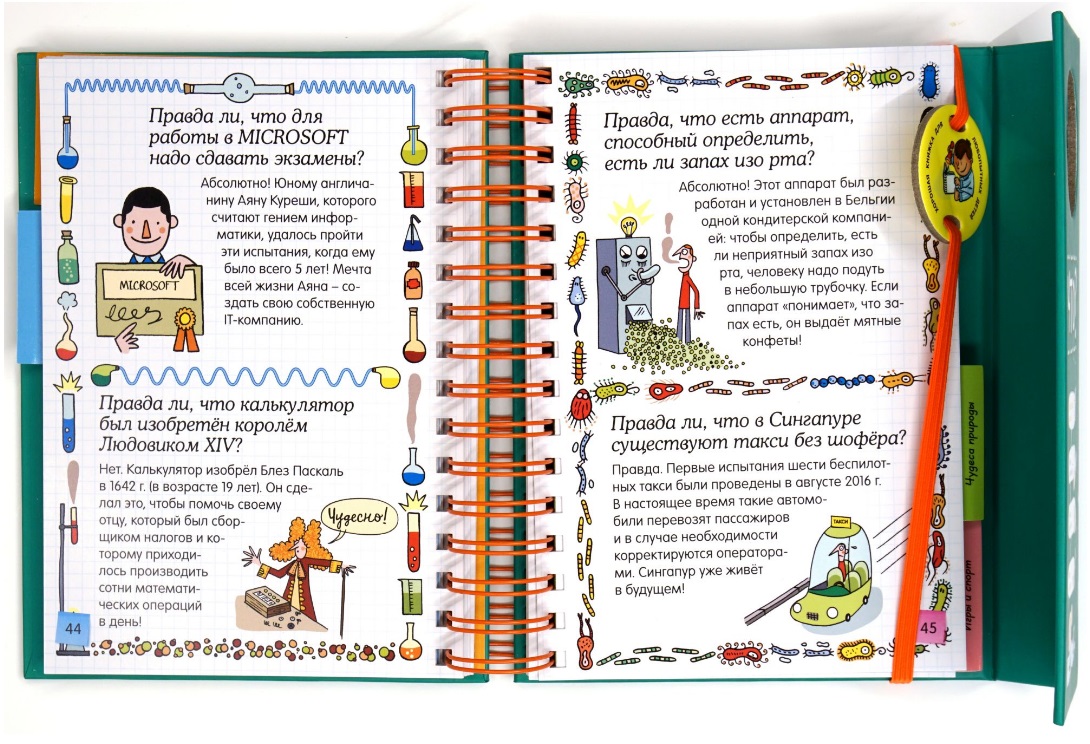 Правда ли, что для
работы в MICROSOFT
надо сдавать экзамены?
Абсолютно! Юному англича-
нину Аяну Куреши, которого
считают гением инфор-
матики, удалось пройти
эти испытания, когда ему
было всего 5 лет! Мечта
всей жизни Аяна – со-
здать свою собственную
IT-компанию.
MICROSOFT
Правда ли, что калькулятор
был изобретён королём
Людовиком XIV?
Нет. Калькулятор изобрёл Блез Паскаль
в 1642 г. (в возрасте 19 лет). Он сде-
лал это, чтобы помочь своему
отцу, который был сбор-
щиком налогов и ко-
торому приходи-
лось производить
сотни математи-
ческих операций
в день!
Чудесно!
44
Правда, что есть аппарат,
способный определить,
есть ли запах изо рта?
Абсолютно! Этот аппарат был раз-
работан и установлен в Бельгии
одной кондитерской компани-
ей: чтобы определить, есть
ли неприятный запах изо
рта, человеку надо подуть
в небольшую трубочку. Если
аппарат «понимает», что за-
пах есть, он выдаёт мятные
конфеты!
Правда ли, что в Сингапуре
существуют такси без шофёра?
Правда. Первые испытания шести беспилот-
ных такси были проведены в августе 2016 г.
В настоящее время такие автомо-
били перевозят пассажиров
и в случае необходимости
корректируются оператора-
ми. Сингапур уже живёт
в будущем!
ТАКСИ
45
ХОРОШАЯ КНИЖКА ДЛЯ ЛЮБОПЫТНЫХ ДЕТЕЙ
Чудеса природы
Игры и спорт